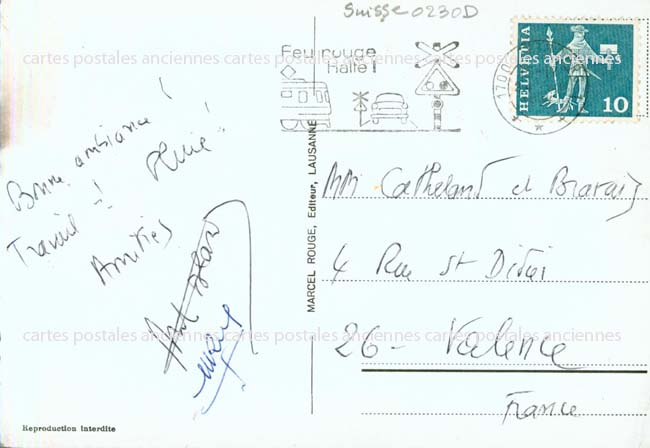 Suisse 0230D
cartes postales anciennes cartes postales anciennes cartes postales anciennes
Feu rouge
Halte !
1700
HELVETIA
10
Bonne ambiance !
Travail - ! Pluie !
Amitiés
MARCEL ROUGE, Editeur, LAUSANNE
MM Catheland et Bravais
4 Rue St Didier
26 - Valence
France
cartes postales anciennes cartes postales anciennes cartes postales anciennes
Reproduction interdite